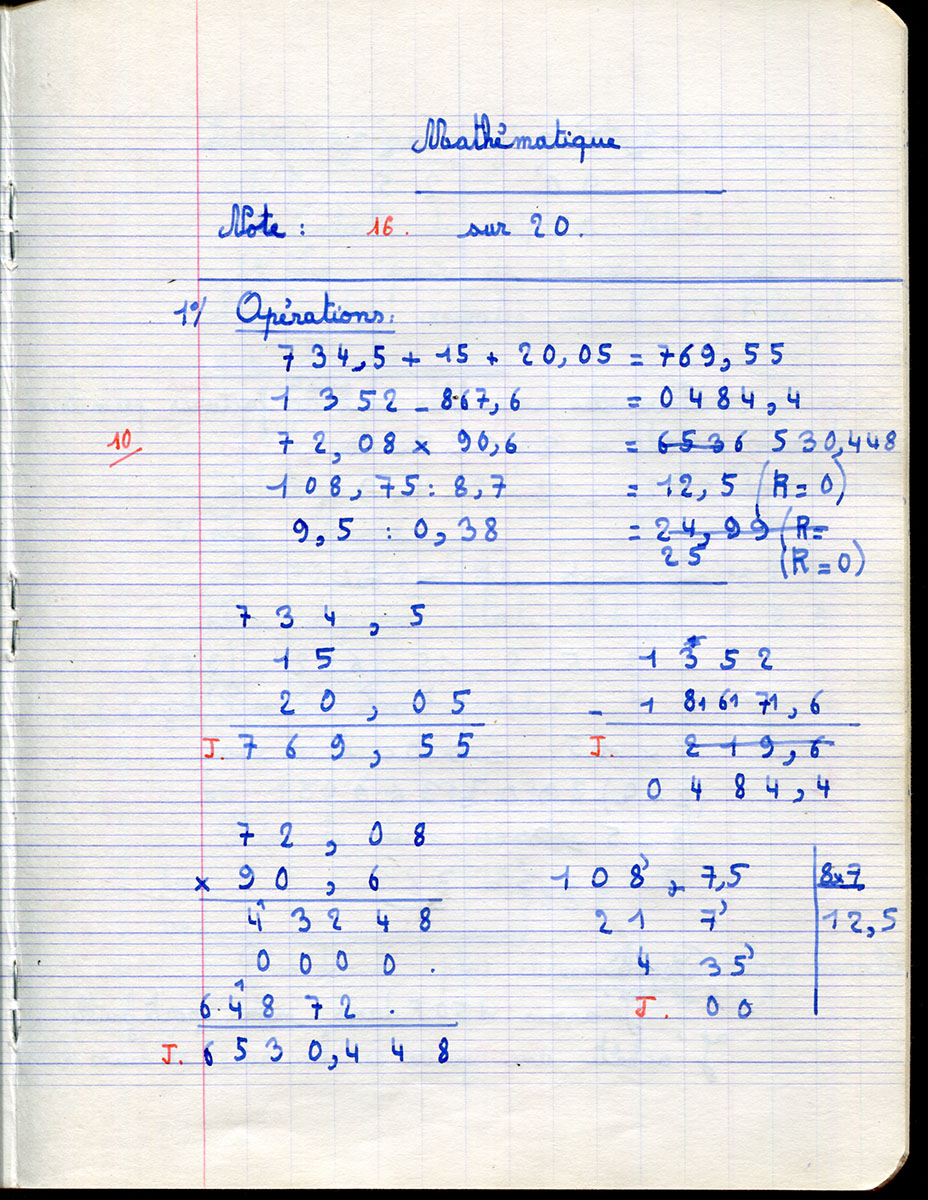 Mathématique
Note : 16. sur 20.
1°/ Opérations:
734,5 + 15 + 20,05 = 769,55
1352 - 867,6 = 0484,4
10
72,08 x 90,6 = 6536 530,448
108,75 : 8,7 = 12,5 (R = 0)
9,5 : 0,38 = 24,99 (R =
25 (R = 0)
734,5
15
20,05
J. 769,55
1352
- 1 81 61 71,6
J. 219,6
0484,4
72,08
x 90,6
43248
0000.
64872.
J. 6530,448
108,7,5 8,7
21 7 12,5
4 35
J. 00